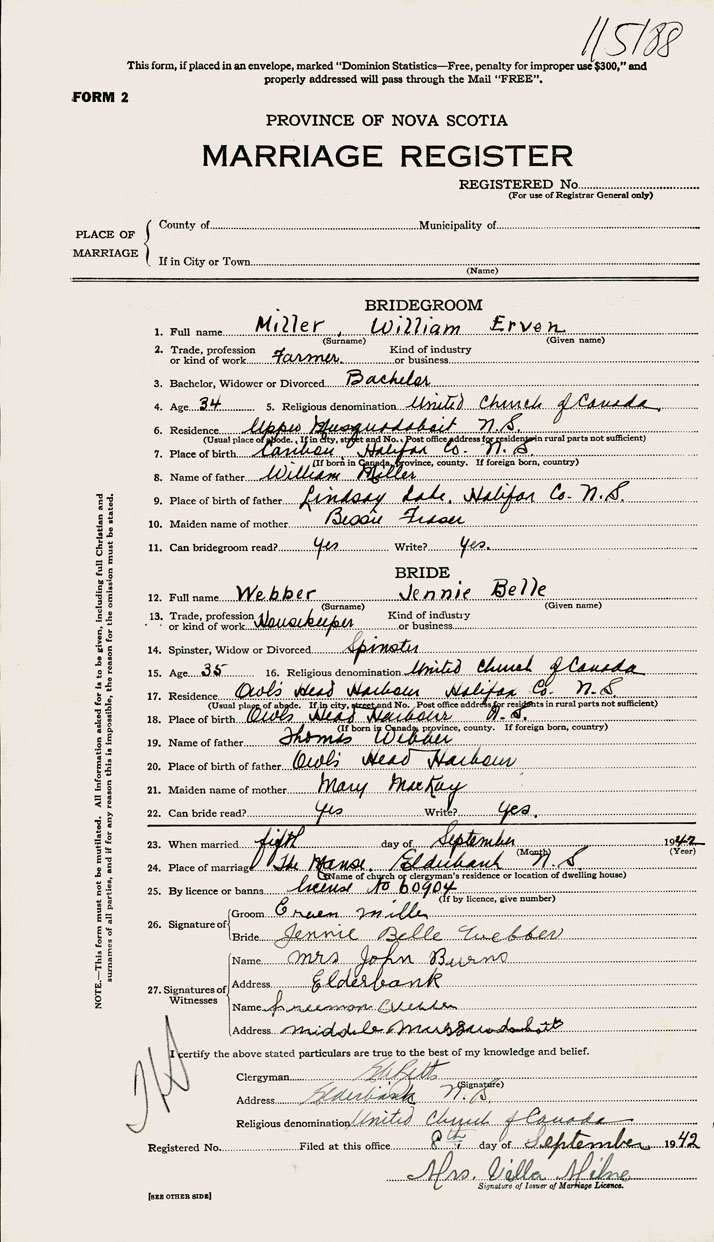 115188
This form, if placed in an envelope, marked "Dominion Statistics—Free, penalty for improper use $300," and
properly addressed will pass through the Mail "FREE".
FORM 2
PROVINCE OF NOVA SCOTIA
MARRIAGE REGISTER
REGISTERED No.
(For use of Registrar General only)
PLACE OF MARRIAGE
County of Municipality of
If in City or Town
(Name)
BRIDEGROOM
1. Full name Miller, William Erven
(Surname) (Given name)
2. Trade, profession or kind of work Farmer. Kind of industry or business
3. Bachelor, Widower or Divorced Bachelor
4. Age 34 5. Religious denomination United Church of Canada
6. Residence Upper Musquodoboit N.S.
(Usual place of abode. If in city, street and No. Post office address for residents in rural parts not sufficient)
7. Place of birth Caribou, Halifax Co. N.S.
(If born in Canada, province, county. If foreign born, country)
8. Name of father William Miller
9. Place of birth of father Lindsay Lake, Halifax Co. N.S.
10. Maiden name of mother Bessie Fraser
11. Can bridegroom read? Yes Write? Yes.
BRIDE
12. Full name Webber Jennie Belle
(Surname) (Given name)
13. Trade, profession or kind of work Housekeeper Kind of industry or business
14. Spinster, Widow or Divorced Spinster
15. Age 35 16. Religious denomination United Church of Canada
17. Residence Owls Head Harbour Halifax Co. N.S
(Usual place of abode. If in city, street and No. Post office address for residents in rural parts not sufficient)
18. Place of birth Owls Head Harbour N.S.
(If born in Canada, province, county. If foreign born, country)
19. Name of father Thomas Webber
20. Place of birth of father Owls Head Harbour
21. Maiden name of mother Mary MacKay
22. Can bride read? Yes Write? Yes.
23. When married fifth day of September 1942
(Month) (Year)
24. Place of marriage The Manse, Elderbank N.S
(Name of church or clergyman's residence or location of dwelling house)
25. By licence or banns license No 60904
(If by licence, give number)
26. Signature of
Groom Erven Miller
Bride Jennie Belle Webber
27. Signatures of Witnesses
Name Mrs John Burns
Address Elderbank
Name Freeman Webber
Address Middle
I certify the above stated particulars are true to the best of my knowledge and belief.
Clergyman
(Signature)
Address Elderbank N.S.
Religious denomination United Church of Canada
Registered No. Filed at this office 8th day of September 1942
Mrs. Vella Milne
Signature of Issuer of Marriage Licence.
[SEE OTHER SIDE]
NOTE.—This form must not be mutilated. All information asked for is to be given, including full Christian and
surnames of all parties, and if for any reason this is impossible, the reason for the omission must be stated.